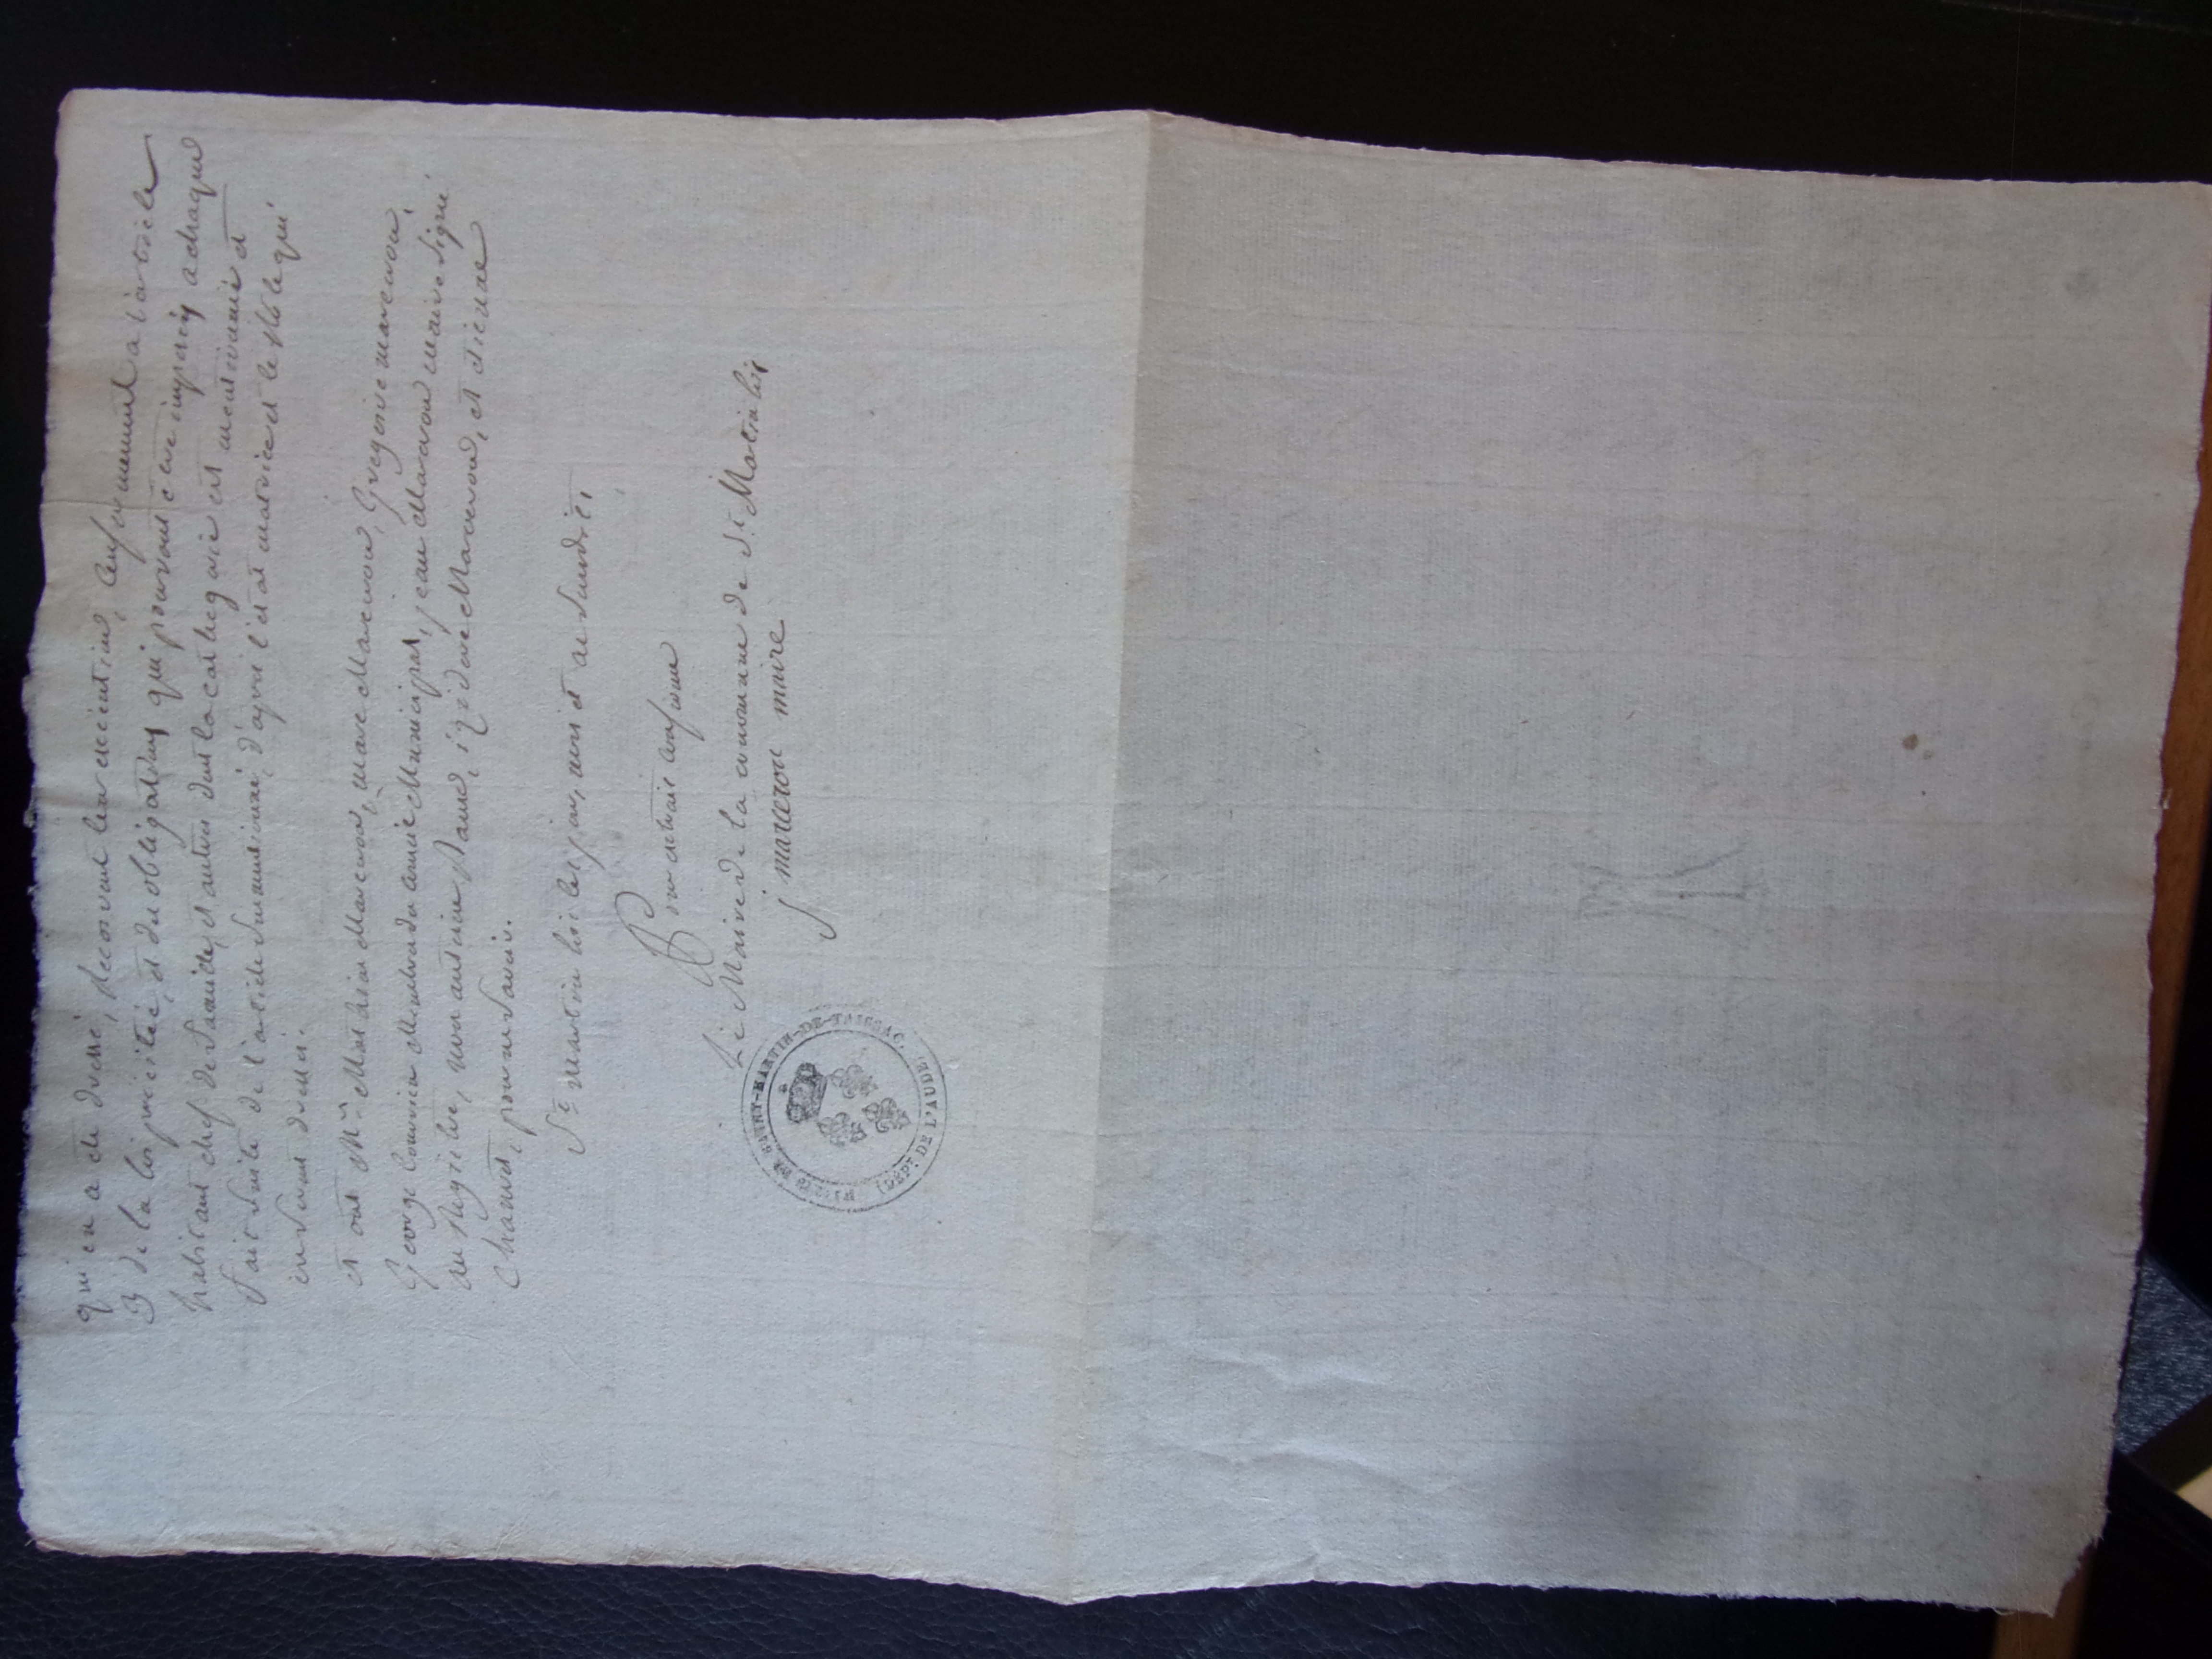 qui en a eté dressé, decorvent leur execution, Conformement a l'article
3 de la loi precitée, et des obligations qui pourront être imposés a chaque
habitant chef de famille, et autres dont la cathegorie est mentionnée et
fait suite de l'article Susmentionné, d'après l'etat matrice et le Rôle qui
en seront dressés.
et ont Mrs Mathieu Marceron, marc Marceron, Gregoire marceron,
George Membres du Conseil Municipal, jean Marceron maire Signé
au Registre, non antoine izidore Marceron, et etienne
Chauvet, pour ne Savoir.
St martin lis les jour, mois et an Susdits,
Pour extrait conforme
Le Maire de la commune de St. Martin lis
j marceron maire
MAIRIE DE SAINT-MARTIN-DE-TAISSAC.
(DÉPT. DE L'AUDE)